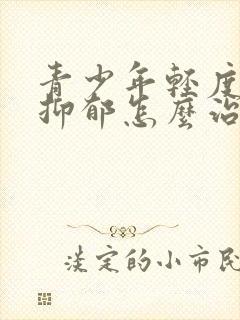 青少年轻度
抑郁怎麼治
淡定的小市民